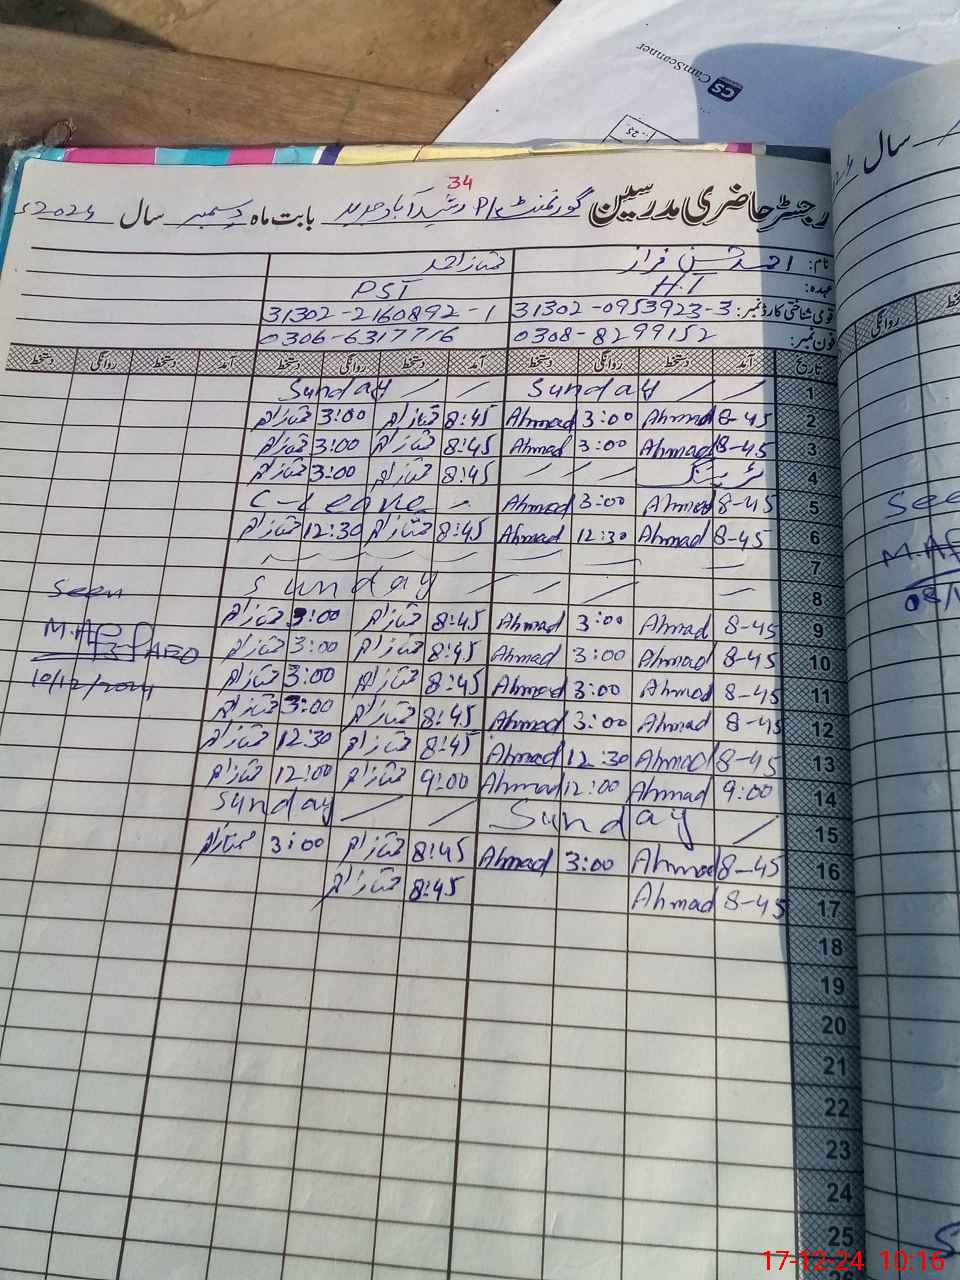 CS CamScanner
سال
34
رجسٹر حاضری مدرسین گورنمنٹ P/S رشیدآباد جدید بابت ماہ دسمبر سال 2024ء
نام: احمد حسن فراز ممتاز احمد
عہدہ: H.T PST
قومی شناختی کارڈ نمبر: 31302-0953923-3 31302-2160892-1
فون نمبر: 0308-8299152 0306-6317716
تاریخ آمد دستخط روانگی دستخط آمد دستخط روانگی دستخط آمد دستخط روانگی دستخط
1 Sunday Sunday
2 8-45 Ahmad 3:00 Ahmad 8:45 ممتاز 3:00 ممتاز
3 8-45 Ahmad 3:00 Ahmad 8:45 ممتاز 3:00 ممتاز
4 ٹریننگ 8:45 ممتاز 3:00 ممتاز
5 8-45 Ahmad 3:00 Ahmad C-Leave
6 8-45 Ahmad 12:30 Ahmad 8:45 ممتاز 12:30 ممتاز
7
8 Sunday
9 8-45 Ahmad 3:00 Ahmad 8:45 ممتاز 3:00 ممتاز
10 8-45 Ahmad 3:00 Ahmad 8:45 ممتاز 3:00 ممتاز
11 8-45 Ahmad 3:00 Ahmad 8:45 ممتاز 3:00 ممتاز
12 8-45 Ahmad 3:00 Ahmad 8:45 ممتاز 3:00 ممتاز
13 8-45 Ahmad 12:30 Ahmad 8:45 ممتاز 12:30 ممتاز
14 9:00 Ahmad 12:00 Ahmad 9:00 ممتاز 12:00 ممتاز
15 Sunday Sunday
16 8-45 Ahmad 3:00 Ahmad 8:45 ممتاز 3:00 ممتاز
17 8-45 Ahmad 8:45 ممتاز
18
19
20
21
22
23
24
25
Seen
AEO
10/12/2024
روانگی
17-12-24 10:16